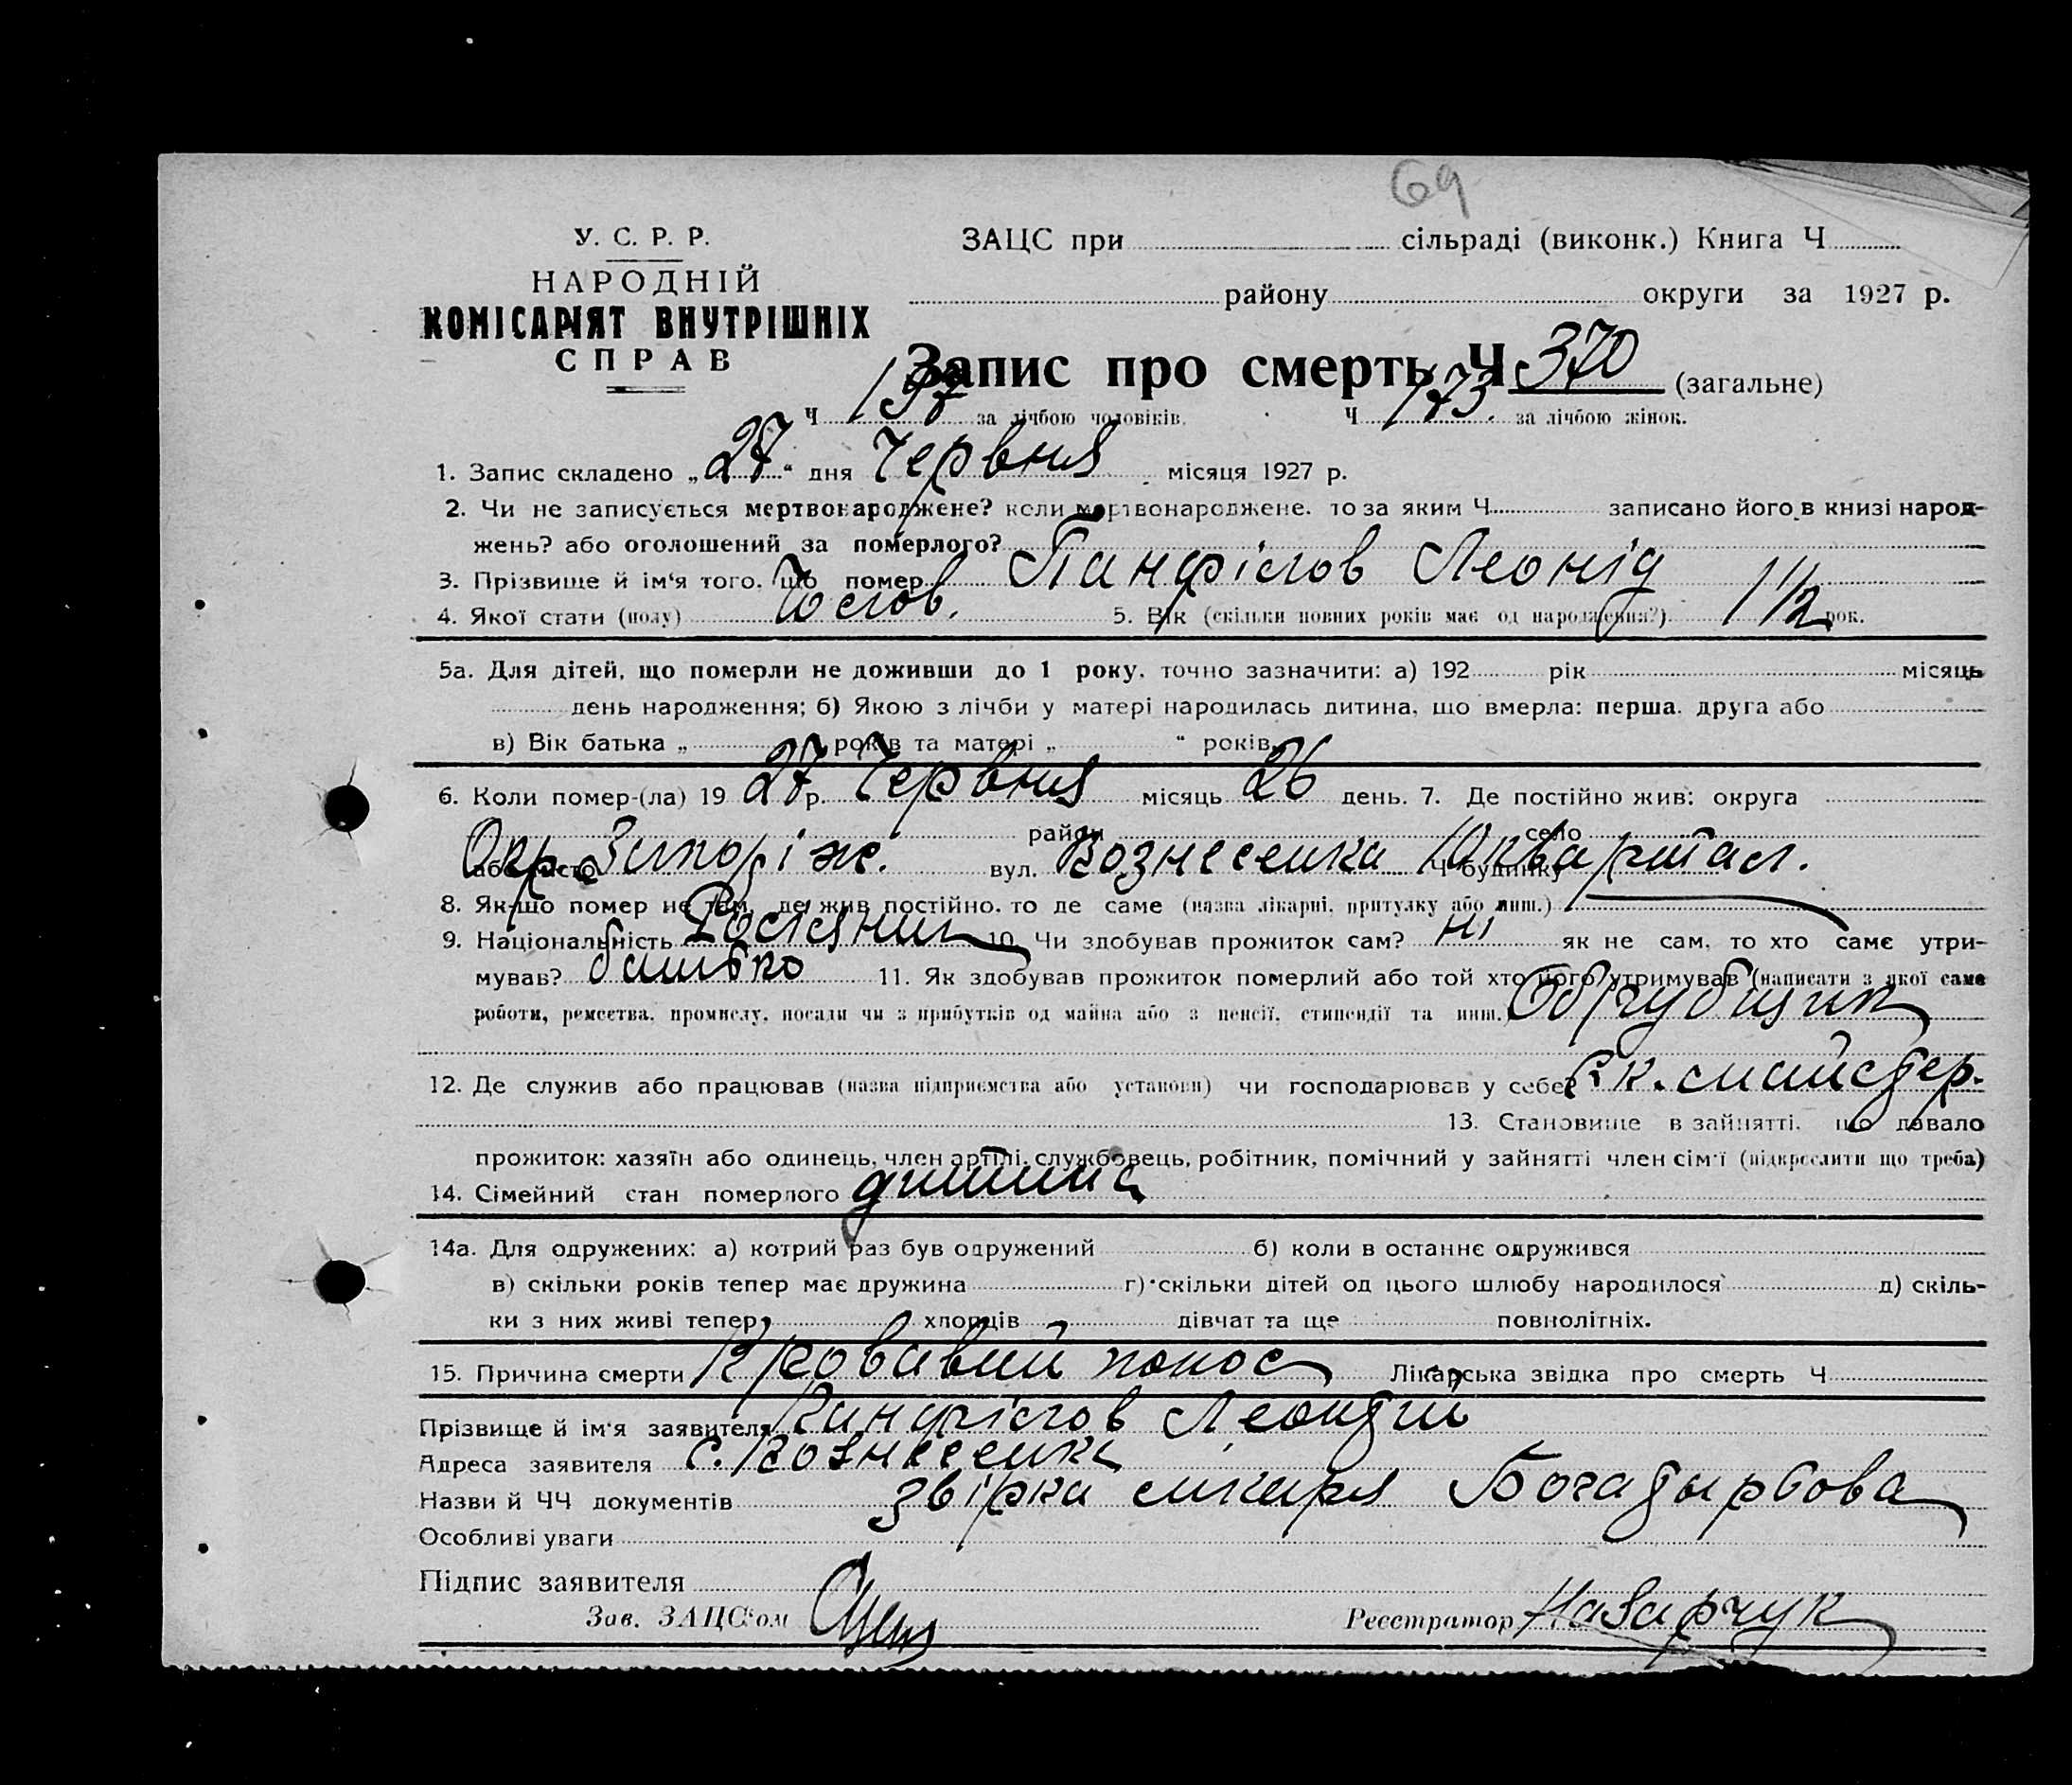 69
У. С. Р. Р.
НАРОДНІЙ
КОМІСАРІЯТ ВНУТРІШНІХ
СПРАВ
ЗАЦС при сільраді (виконк.) Книга Ч
району округи за 1927 р.
Запис про смерть Ч 370 (загальне)
Ч 197 за лічбою чоловіків. Ч 173. за лічбою жінок.
1. Запис складено „27“ дня Червня місяця 1927 р.
2. Чи не записується мертвонароджене? коли мертвонароджене, то за яким Ч записано його в книзі народ-
жень? або оголошений за померлого?
3. Прізвище й ім'я того, що помер Панфілов Леонід
4. Якої стати (полу) Чолов. 5. Вік (скільки повних років має од народження?) 1 1/2 рок.
5а. Для дітей, що померли не доживши до 1 року, точно зазначити: а) 192 рік місяць
день народження; б) Якою з лічби у матері народилась дитина, що вмерла: перша, друга або
в) Вік батька „ років та матері „ “ років.
6. Коли помер-(ла) 19 27 р. Червня місяць 26 день. 7. Де постійно жив: округа
район село
або місто Окр. Запоріж. вул. Вознесенка Ч будинку 10 квартал.
8. Як-що помер не там, де жив постійно, то де саме (назва лікарні, притулку або инш.)
9. Національність Росіянин 10. Чи здобував прожиток сам? ні як не сам, то хто саме утри-
мував? батько 11. Як здобував прожиток померлий або той хто його утримував (написати з якої саме
роботи, ремества, промислу, посади чи з прибутків од майна або з пенсії, стипендії та инш.)
12. Де служив або працював (назва підприємства або установи) чи господарював у себе? к. майстер.
13. Становище в зайнятті, що давало
прожиток: хазяїн або одинець, член артілі, службовець, робітник, помічний у зайнятті член сім'ї (підкреслити що треба)
14. Сімейний стан померлого дитина
14а. Для одружених: а) котрий раз був одружений б) коли в останнє одружився
в) скільки років тепер має дружина г) скільки дітей од цього шлюбу народилося д) скіль-
ки з них живі тепер, хлопців дівчат та ще повнолітніх.
15. Причина смерти Кровавий понос Лікарська звідка про смерть Ч
Прізвище й ім'я заявителя Панфілов Леондій
Адреса заявителя с. Вознесенка
Назви й ЧЧ документів звірка лікаря Богадырьова
Особливі уваги
Підпис заявителя
Зав. ЗАЦС'ом Реєстратор Назарчук